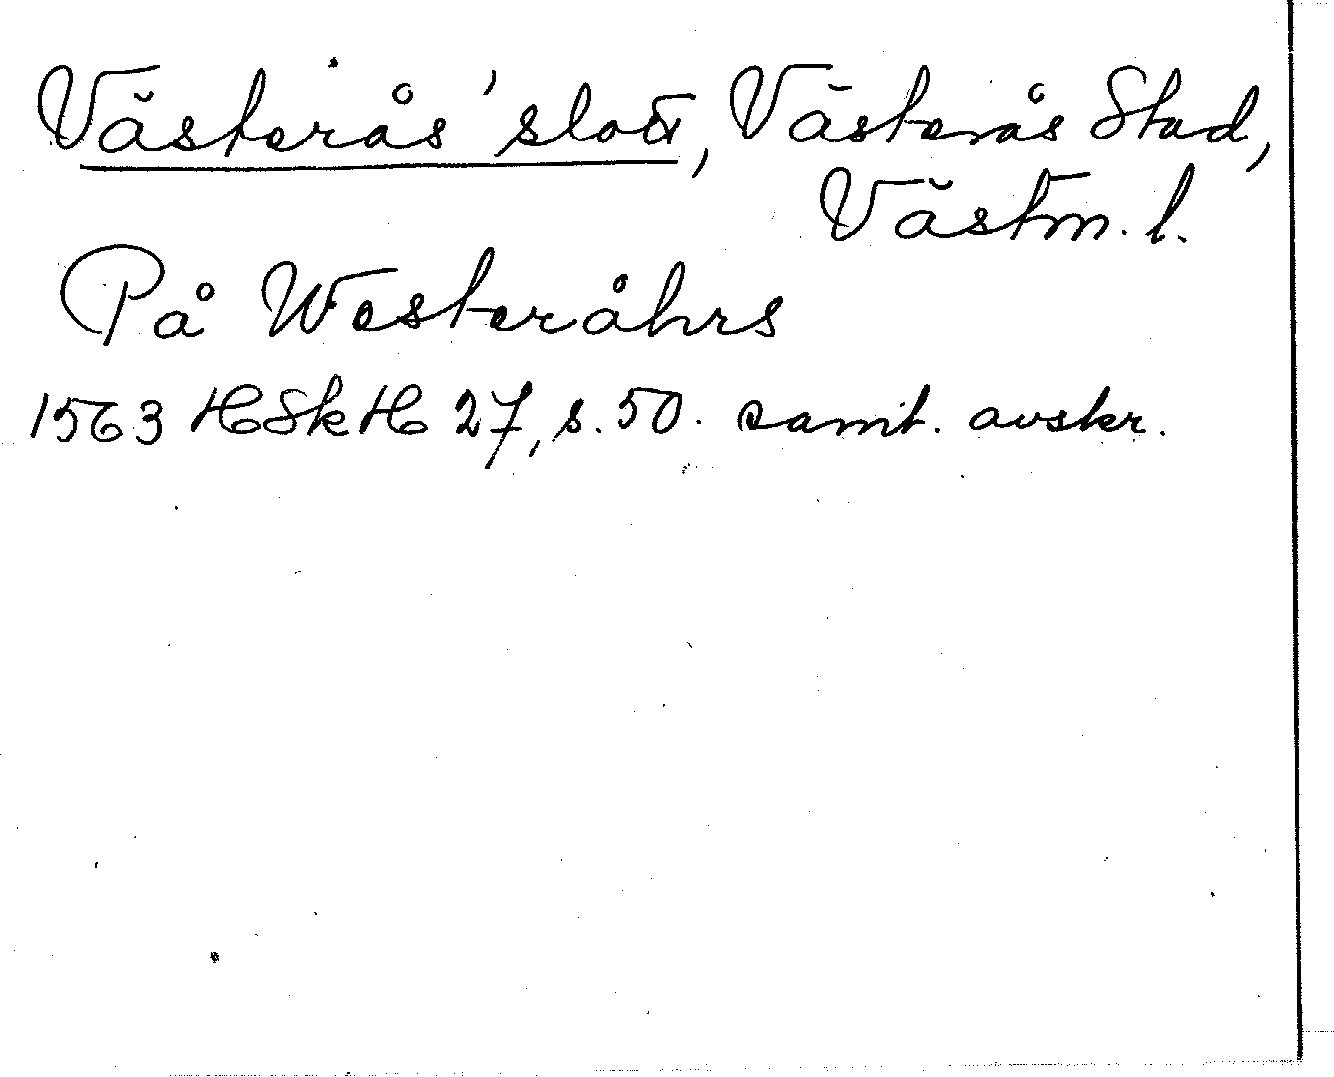 Västerås slott, Västerås Stad,
Västm. l.
På Westeråhrs
1563 HSkH 27, s. 50. samt. avskr.